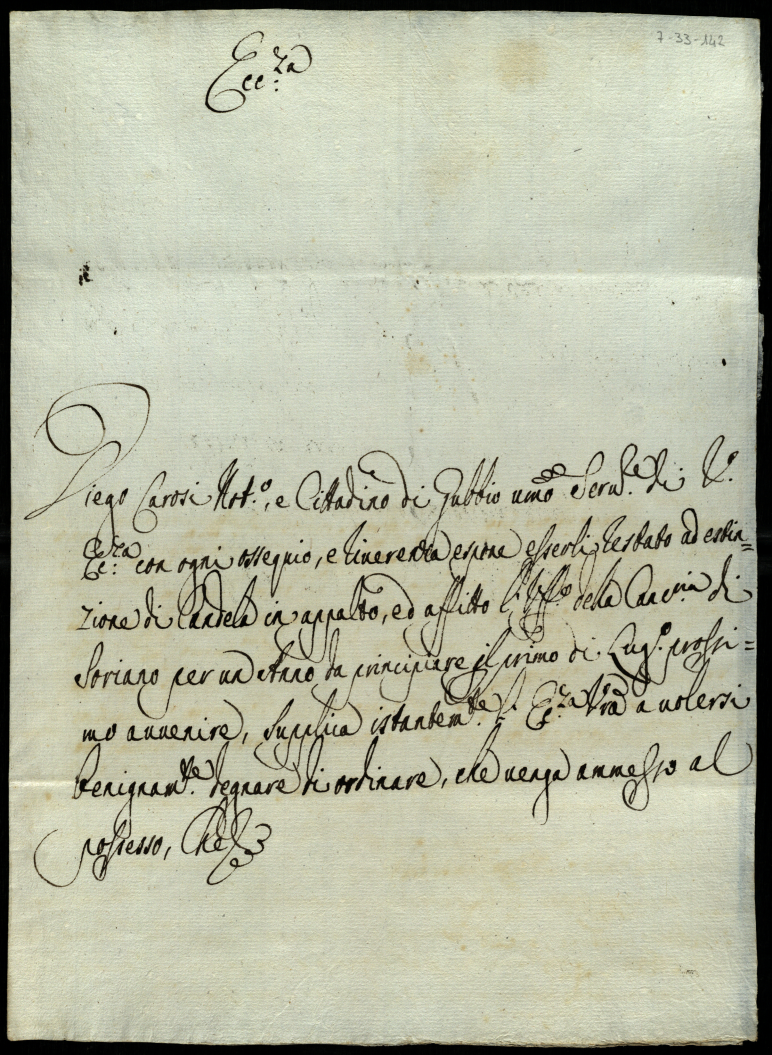 7-33-142
Ecc:za
Diego Carosi Not:o, e Cittadino di Gubbio umo Seru:e di V:
Ecc:za con ogni ossequio, e riuerenza espone esserli restato ad estin=
zione di Candela in appalto, ed affitto l'Uff:o della Canc:ria di
Soriano per un Anno da principiare il primo di Lug:o prossi=
mo auuenire, supplica istantem:te l'Ecc:za Vra a uolersi
benignam:te degnare di ordinare, che uenga ammesso al
possesso, Che